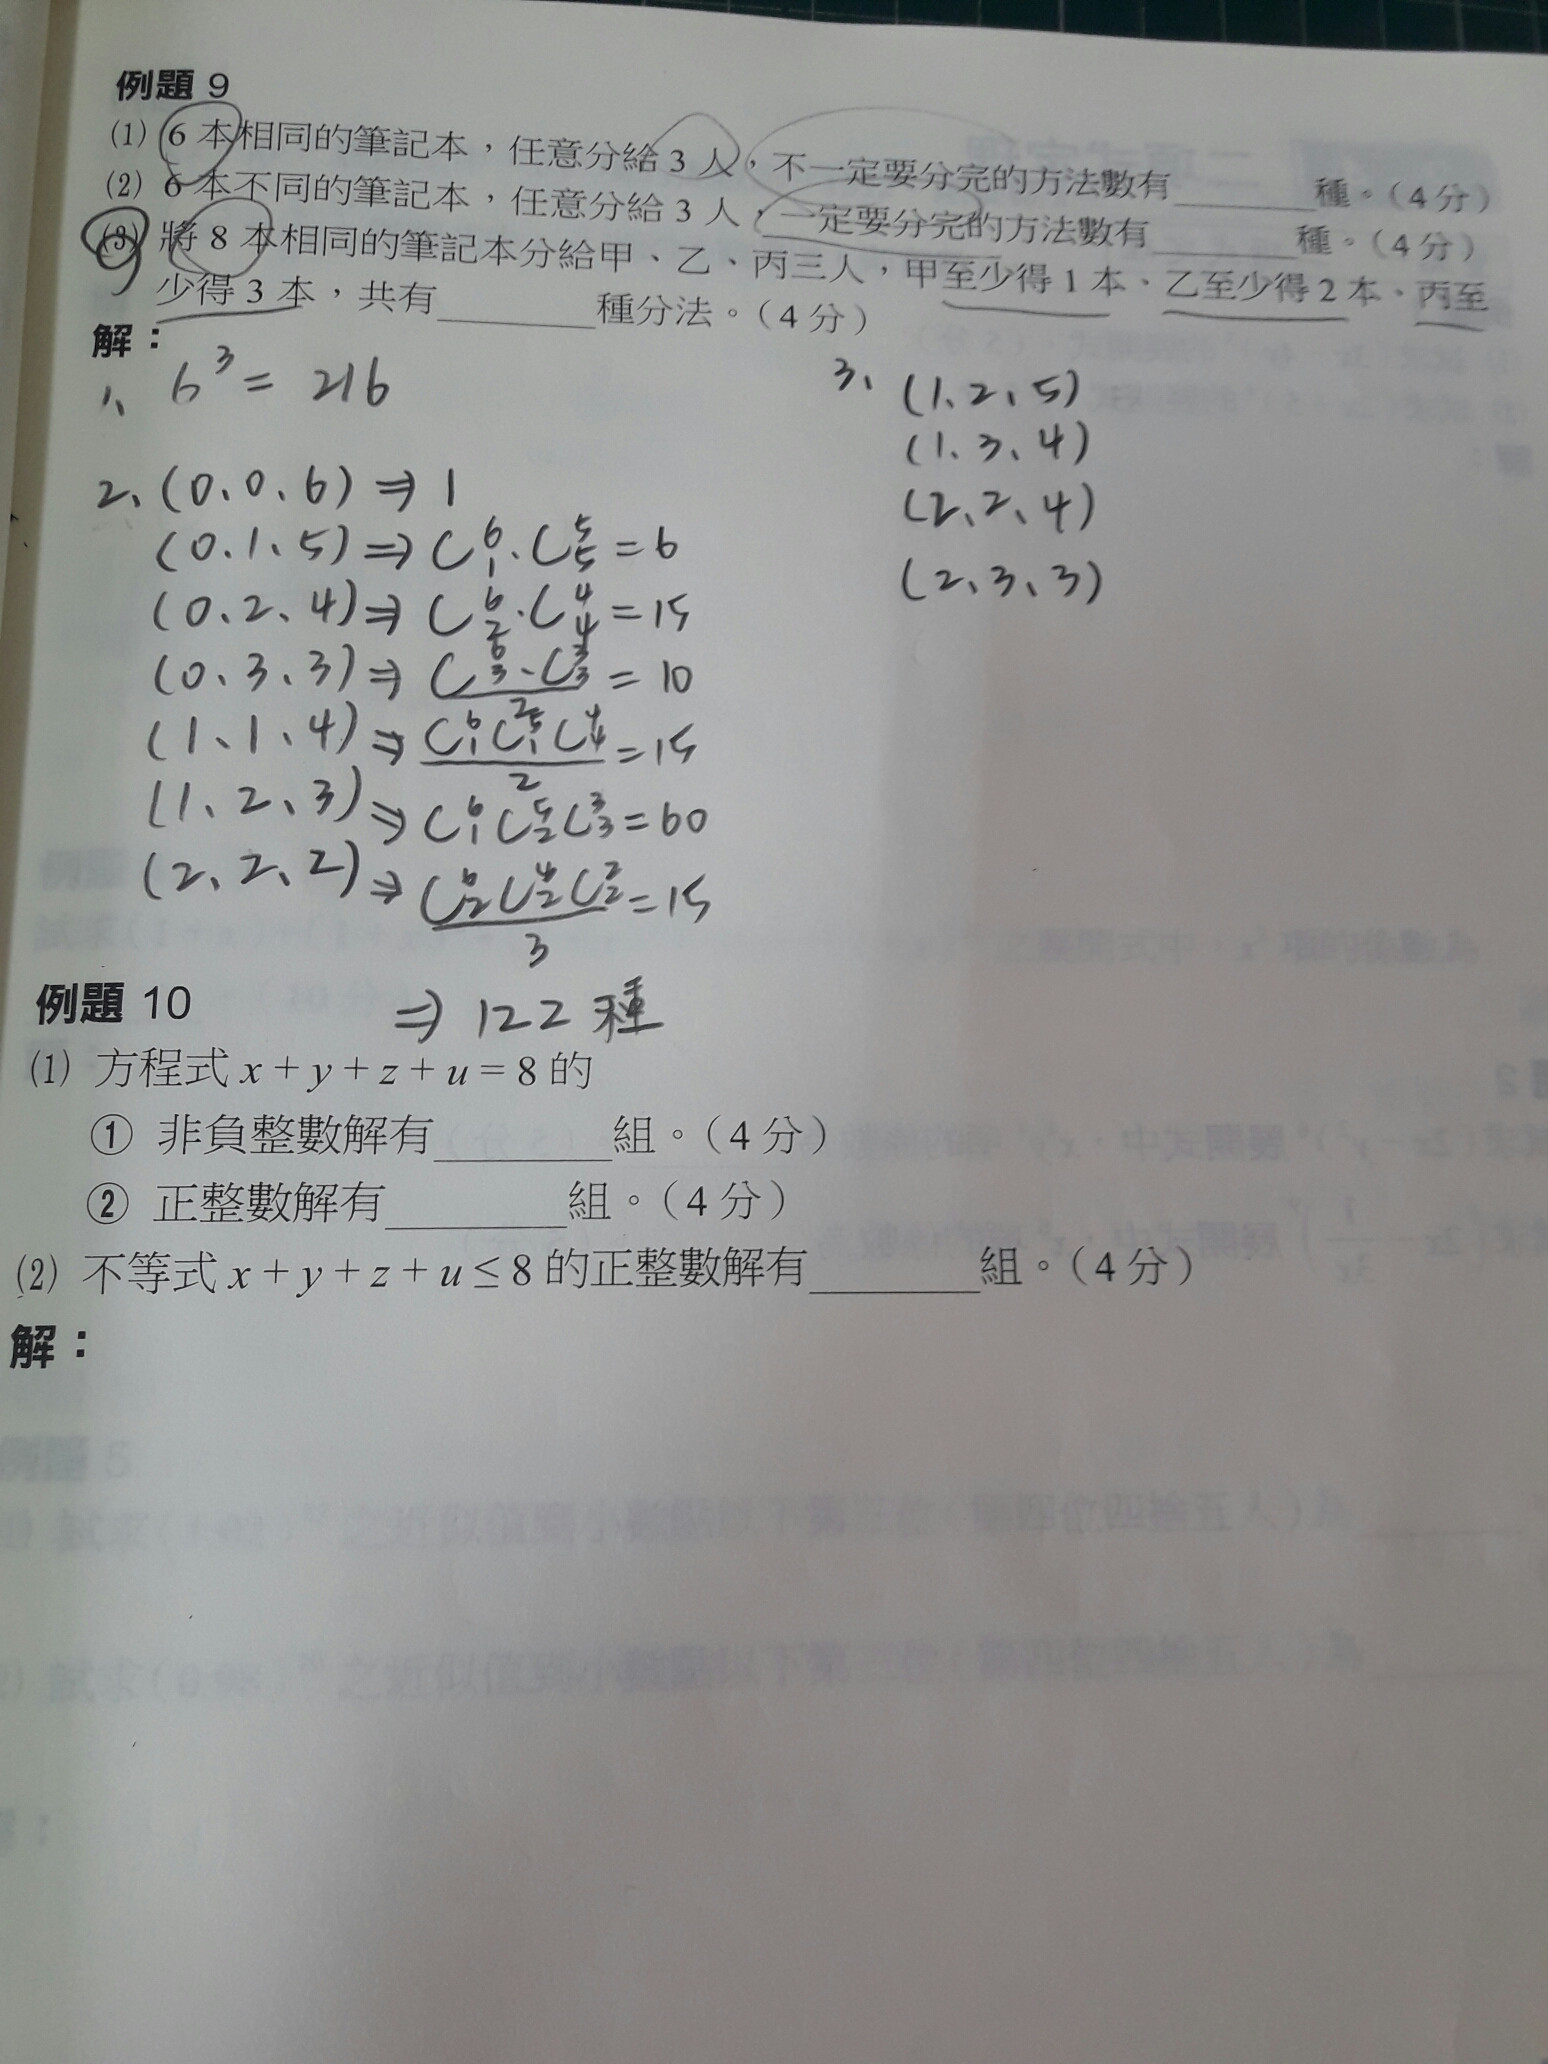 例題 9
(1) 6 本相同的筆記本，任意分給 3 人，不一定要分完的方法數有______種。（4 分）
(2) 6 本不同的筆記本，任意分給 3 人，一定要分完的方法數有______種。（4 分）
(3) 將 8 本相同的筆記本分給甲、乙、丙三人，甲至少得 1 本、乙至少得 2 本、丙至
少得 3 本，共有______種分法。（4 分）
解：
1、 6³ = 216
2、(0、0、6) ⇒ 1
(0、1、5) ⇒ C⁶₁·C⁵₅ = 6
(0、2、4) ⇒ C⁶₂·C⁴₄ = 15
(0、3、3) ⇒ C⁶₃·C³₃ / 2 = 10
(1、1、4) ⇒ C⁶₁C⁵₁C⁴₄ / 2 = 15
(1、2、3) ⇒ C⁶₁C⁵₂C³₃ = 60
(2、2、2) ⇒ C⁶₂C⁴₂C²₂ / 3 = 15
⇒ 122 種
3、(1、2、5)
(1、3、4)
(2、2、4)
(2、3、3)
例題 10
(1) 方程式 x + y + z + u = 8 的
① 非負整數解有______組。（4 分）
② 正整數解有______組。（4 分）
(2) 不等式 x + y + z + u ≤ 8 的正整數解有______組。（4 分）
解：